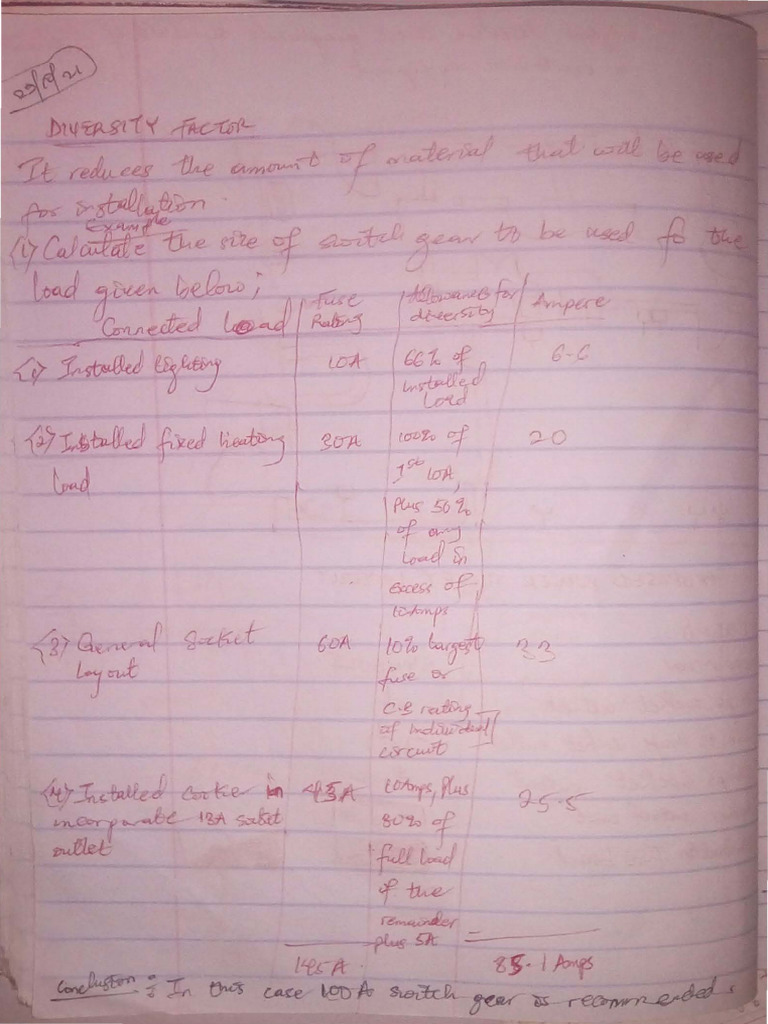 DIVERSITY FACTOR
It reduces the amount of material that will be used
for installation.
Example
(1) Calculate the size of switch gear to be used fo the
load given below;
Connected load | Fuse Rating | Allowances for diversity | Ampere
(1) Installed lighting | 10A | 66% of installed Load | 6.6
(2) Installed fixed heating load | 30A | 100% of 1st 10A, Plus 50% of any load in excess of 10Amps | 20
(3) General Socket Layout | 60A | 10% largest fuse or C.B rating of individual circuit | 33
(4) Installed cooker in incorporate 13A socket outlet | 45A | 10Amps, Plus 30% of full load of the remainder plus 5A | 25.5
145A = 85.1 Amps
Conclusion: In this case 100A switch gear is recommended.